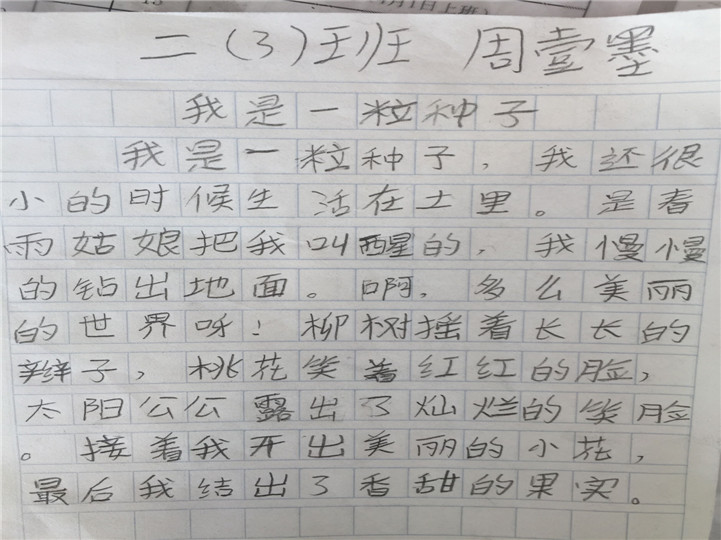 二(3)班 周壹墨
我是一粒种子
我是一粒种子，我还很
小的时候生活在土里。是春
雨姑娘把我叫醒的，我慢慢
的钻出地面。啊，多么美丽
的世界呀！柳树摇着长长的
辫子，桃花笑着红红的脸，
太阳公公露出了灿烂的笑脸
。接着我开出美丽的小花，
最后我结出了香甜的果实。